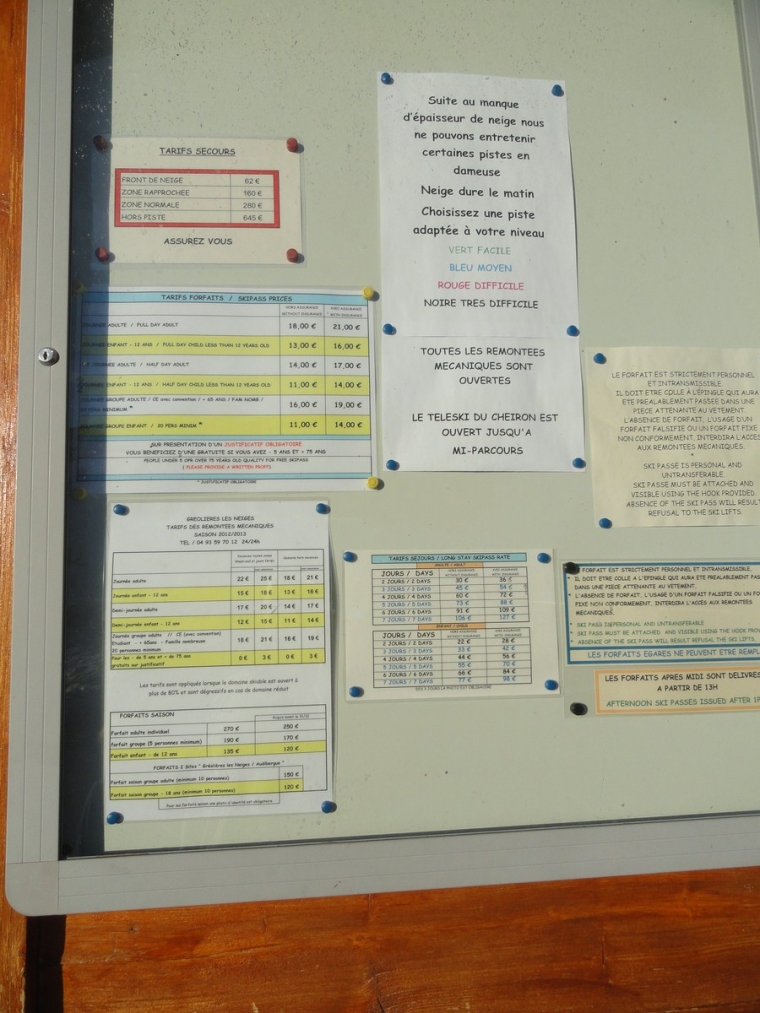 TARIFS SECOURS
FRONT DE NEIGE 62 €
ZONE RAPPROCHEE 160 €
ZONE NORMALE 280 €
HORS PISTE 645 €
ASSUREZ VOUS
Suite au manque
d'épaisseur de neige nous
ne pouvons entretenir
certaines pistes en
dameuse
Neige dure le matin
Choisissez une piste
adaptée à votre niveau
VERT FACILE
BLEU MOYEN
ROUGE DIFFICILE
NOIRE TRES DIFFICILE
TOUTES LES REMONTEES
MECANIQUES SONT
OUVERTES
LE TELESKI DU CHEIRON EST
OUVERT JUSQU'A
MI-PARCOURS
TARIFS FORFAITS / SKIPASS PRICES
HORS ASSURANCE AVEC ASSURANCE
WITHOUT INSURANCE WITH INSURANCE
ADULTE / FULL DAY ADULT 18,00 € 21,00 €
ENFANT - 12 ANS / FULL DAY CHILD LESS THAN 12 YEARS OLD 13,00 € 16,00 €
ADULTE / HALF DAY ADULT 14,00 € 17,00 €
ENFANT - 12 ANS / HALF DAY CHILD LESS THAN 12 YEARS OLD 11,00 € 14,00 €
GROUPE ADULTE / CE avec convention / + 65 ANS / FAM NOMB /
MINIMUM * 16,00 € 19,00 €
GROUPE ENFANT / 20 PERS MINIM * 11,00 € 14,00 €
SUR PRESENTATION D'UN JUSTIFICATIF OBLIGATOIRE
VOUS BENEFICIEZ D'UNE GRATUITE SI VOUS AVEZ - 5 ANS ET + 75 ANS
PEOPLE UNDER 5 OR OVER 75 YEARS OLD QUALITY FOR FREE SKIPASS
( PLEASE PROVIDE A WRITTEN PROOF)
* JUSTIFICATIF OBLIGATOIRE
LE FORFAIT EST STRICTEMENT PERSONNEL
ET INTRANSMISSIBLE.
IL DOIT ETRE COLLE A L'ÉPINGLE QUI AURA
ETE PREALABLEMENT PASSEE DANS UNE
PIECE ATTENANTE AU VETEMENT.
L'ABSENCE DE FORFAIT, L'USAGE D'UN
FORFAIT FALSIFIE OU UN FORFAIT FIXE
NON CONFORMEMENT, INTERDIRA L'ACCES
AUX REMONTEES MECANIQUES.
*
SKI PASS IS PERSONAL AND
UNTRANSFERABLE.
SKI PASS MUST BE ATTACHED AND
VISIBLE USING THE HOOK PROVIDED.
ABSENCE OF THE SKI PASS WILL RESULT
REFUSAL TO THE SKI LIFTS.
GREOLIERES LES NEIGES
TARIFS DES REMONTEES MECANIQUES
SAISON 2012/2013
TEL / 04 93 59 70 12 24/24h
Journée adulte 22 € 25 € 18 € 21 €
Journée enfant - 12 ans 15 € 18 € 13 € 16 €
Semi-journée adulte 17 € 20 € 14 € 17 €
Semi-journée enfant - 12 ans 12 € 15 € 11 € 14 €
Journée groupe adulte // CE (avec convention)
Etudiant - + 65ans - Famille nombreuses
20 personnes minimum 18 € 21 € 16 € 19 €
Pour les - de 5 ans et + de 75 ans
gratuits sur justificatif 0 € 3 € 0 € 3 €
Les tarifs sont appliqués lorsque le domaine skiable est ouvert à
plus de 80% et sont dégressifs en cas de domaine réduit
FORFAITS SAISON
Forfait adulte individuel 270 € 250 €
forfait groupe (5 personnes minimum) 190 € 170 €
Forfait enfant - de 12 ans 135 € 120 €
FORFAITS 2 Sites " Gréolières les Neiges / Audibergue "
Forfait saison groupe adulte (minimum 10 personnes) 150 €
Forfait saison groupe - 18 ans (minimum 10 personnes) 120 €
Pour les forfaits saison une pièce d'identité est obligatoire
TARIFS SEJOURS / LONG STAY SKIPASS RATE
ADULTE / ADULT
JOURS / DAYS
2 JOURS / 2 DAYS 30 € 36 €
3 JOURS / 3 DAYS 45 € 54 €
4 JOURS / 4 DAYS 60 € 72 €
5 JOURS / 5 DAYS 73 € 88 €
6 JOURS / 6 DAYS 91 € 109 €
7 JOURS / 7 DAYS 106 € 127 €
ENFANT / CHILD
JOURS / DAYS
2 JOURS / 2 DAYS 22 € 28 €
3 JOURS / 3 DAYS 33 € 42 €
4 JOURS / 4 DAYS 44 € 56 €
5 JOURS / 5 DAYS 55 € 70 €
6 JOURS / 6 DAYS 66 € 84 €
7 JOURS / 7 DAYS 77 € 98 €
DES 5 JOURS LA PHOTO EST OBLIGATOIRE
FORFAIT EST STRICTEMENT PERSONNEL ET INTRANSMISSIBLE.
* IL DOIT ETRE COLLE A L'EPINGLE QUI AURA ETE PREALABLEMENT
DANS UNE PIECE ATTENANTE AU VETEMENT.
* L'ABSENCE DE FORFAIT, L'USAGE D'UN FORFAIT FALSIFIE OU UN
FIXE NON CONFORMEMENT, INTERDIRA L'ACCES AUX REMONTEES
MECANIQUES.
* SKI PASS IS PERSONAL AND UNTRANSFERABLE
* SKI PASS MUST BE ATTACHED AND VISIBLE USING THE HOOK
* ABSENCE OF THE SKI PASS WILL RESULT REFUSAL TO THE SKI LIFTS.
LES FORFAITS EGARES NE PEUVENT ETRE
LES FORFAITS APRES MIDI SONT DELIVRES
A PARTIR DE 13H
AFTERNOON SKI PASSES ISSUED AFTER